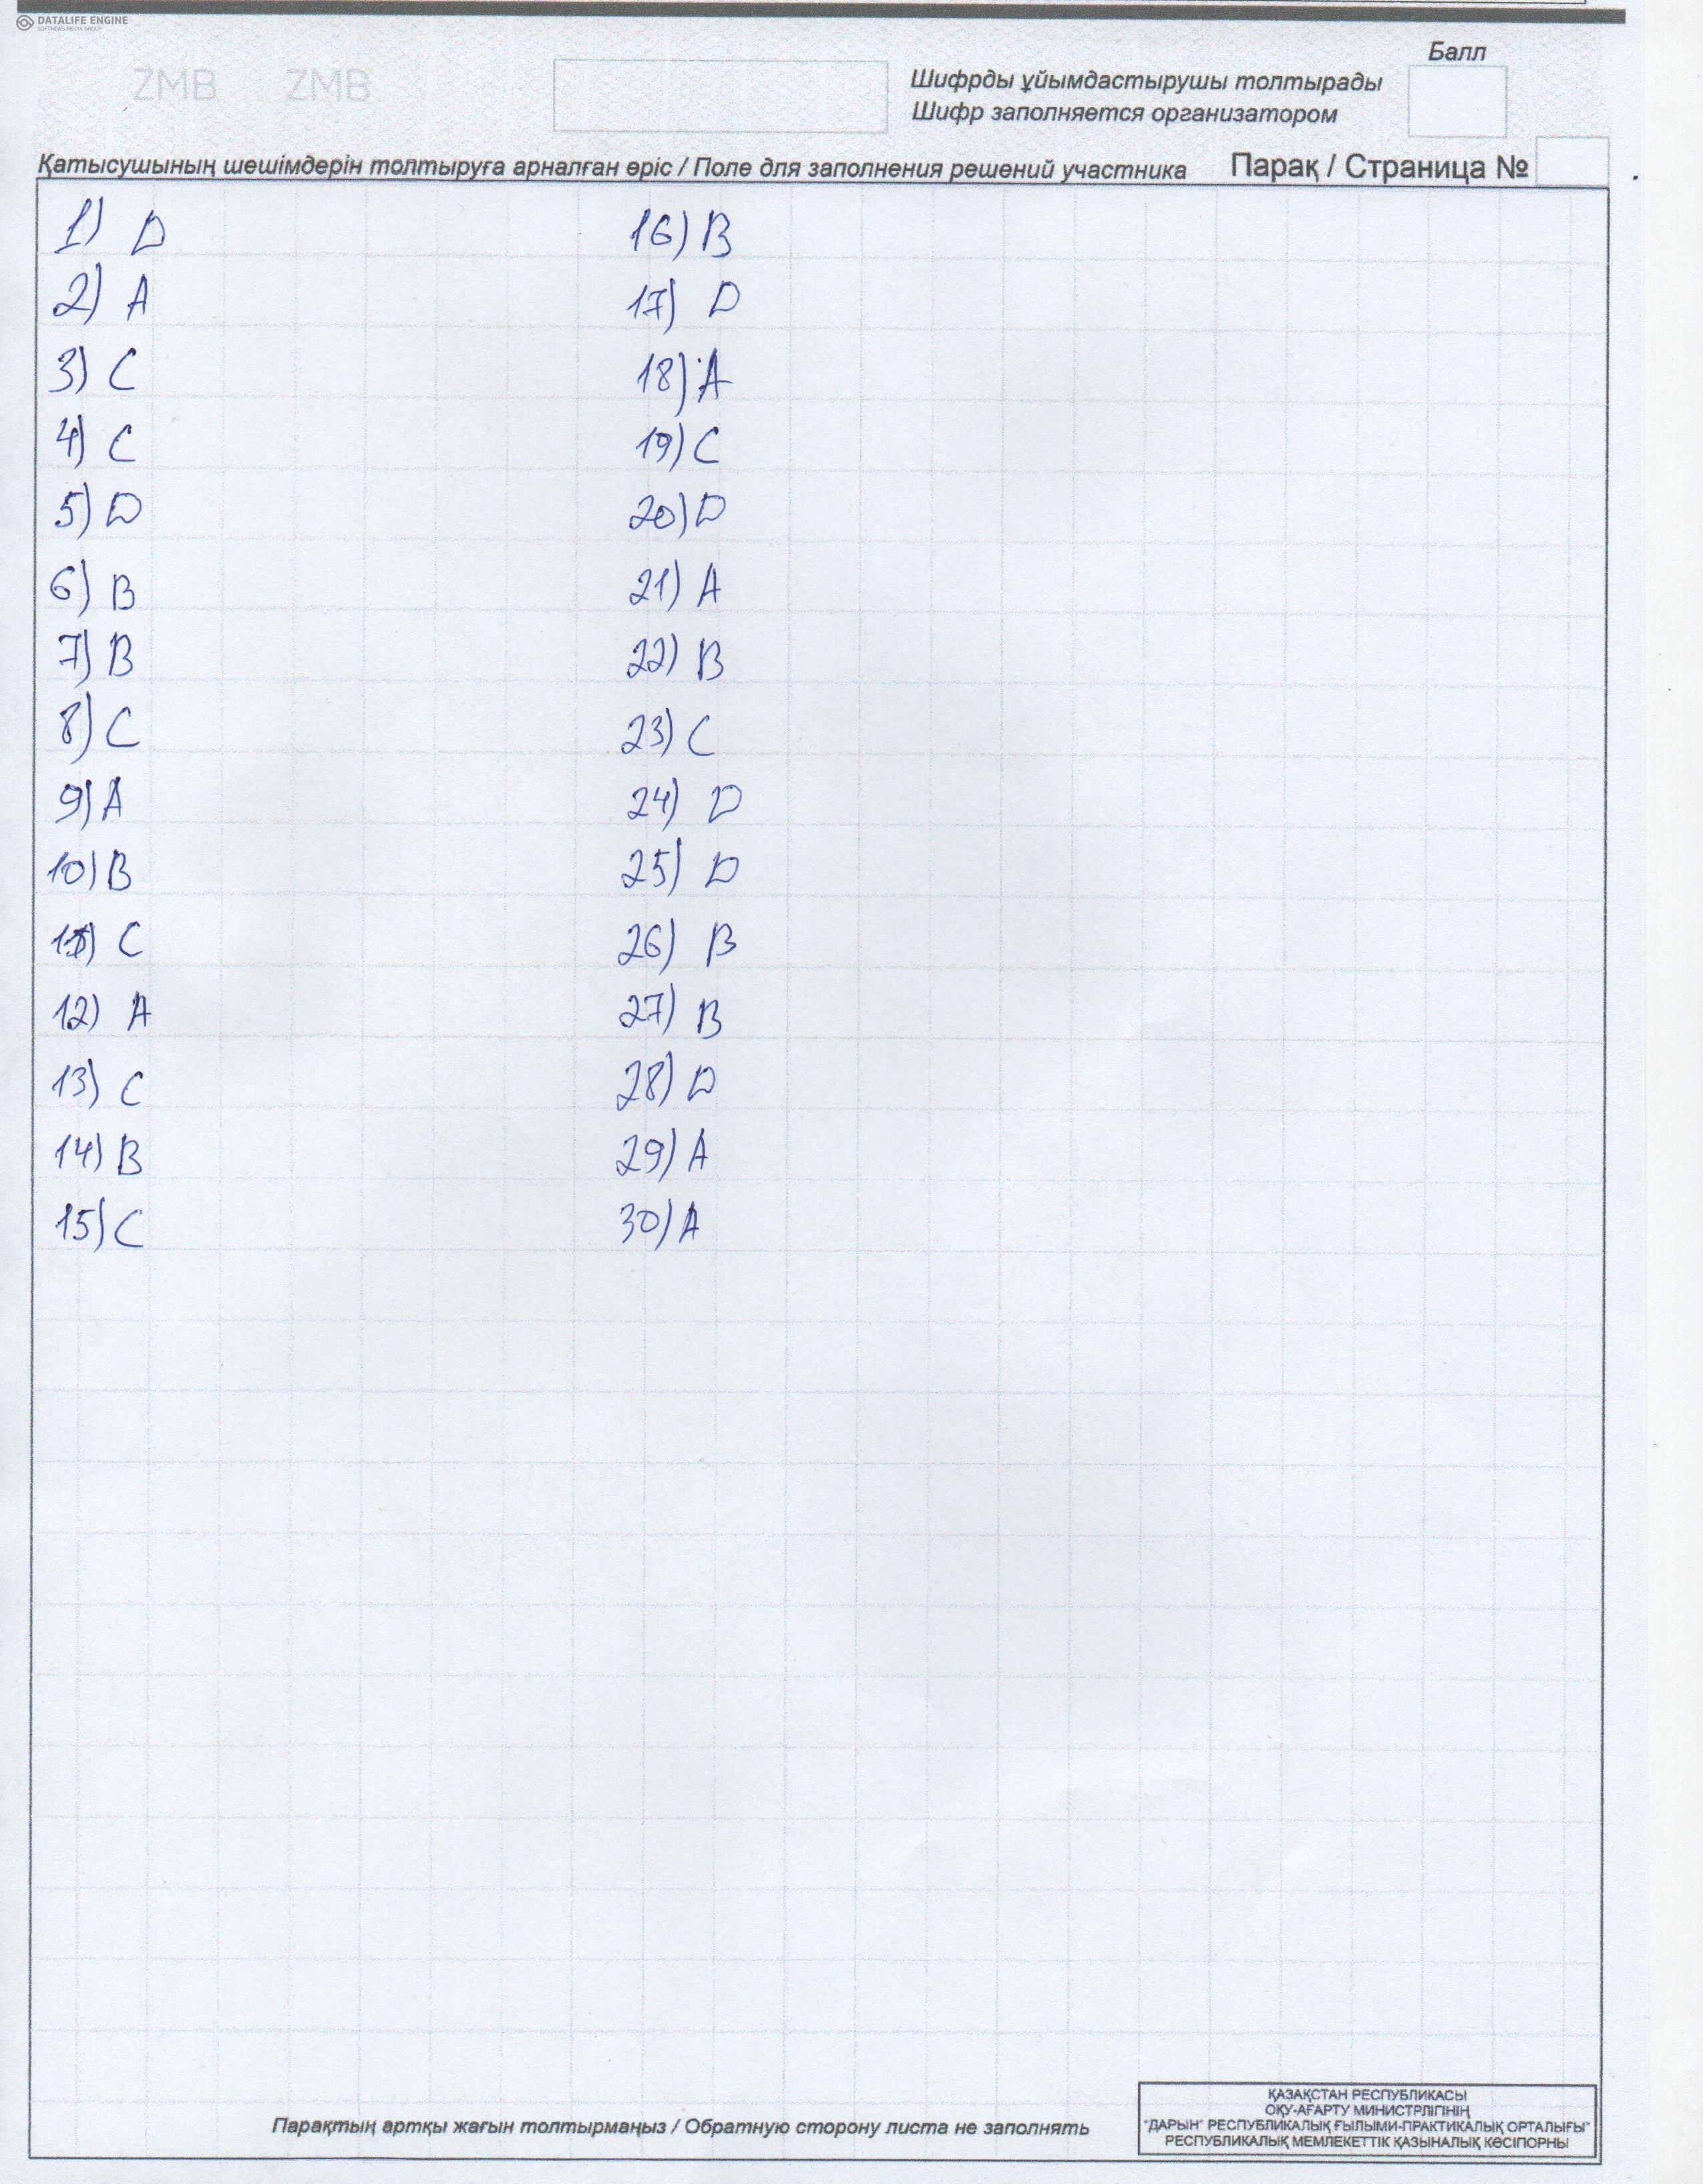 DATALIFE ENGINE
SOFTNEWS MEDIA GROUP
ZMB ZMB
Балл
Шифрды ұйымдастырушы толтырады
Шифр заполняется организатором
Қатысушының шешімдерін толтыруға арналған өріс / Поле для заполнения решений участника
Парақ / Страница №
1) D
2) A
3) C
4) C
5) D
6) B
7) B
8) C
9) A
10) B
11) C
12) A
13) C
14) B
15) C
16) B
17) D
18) A
19) C
20) D
21) A
22) B
23) C
24) D
25) D
26) B
27) B
28) D
29) A
30) A
Парақтың артқы жағын толтырмаңыз / Обратную сторону листа не заполнять
ҚАЗАҚСТАН РЕСПУБЛИКАСЫ
ОҚУ-АҒАРТУ МИНИСТРЛІГІНІҢ
"ДАРЫН" РЕСПУБЛИКАЛЫҚ ҒЫЛЫМИ-ПРАКТИКАЛЫҚ ОРТАЛЫҒЫ"
РЕСПУБЛИКАЛЫҚ МЕМЛЕКЕТТІК ҚАЗЫНАЛЫҚ КӘСІПОРНЫ